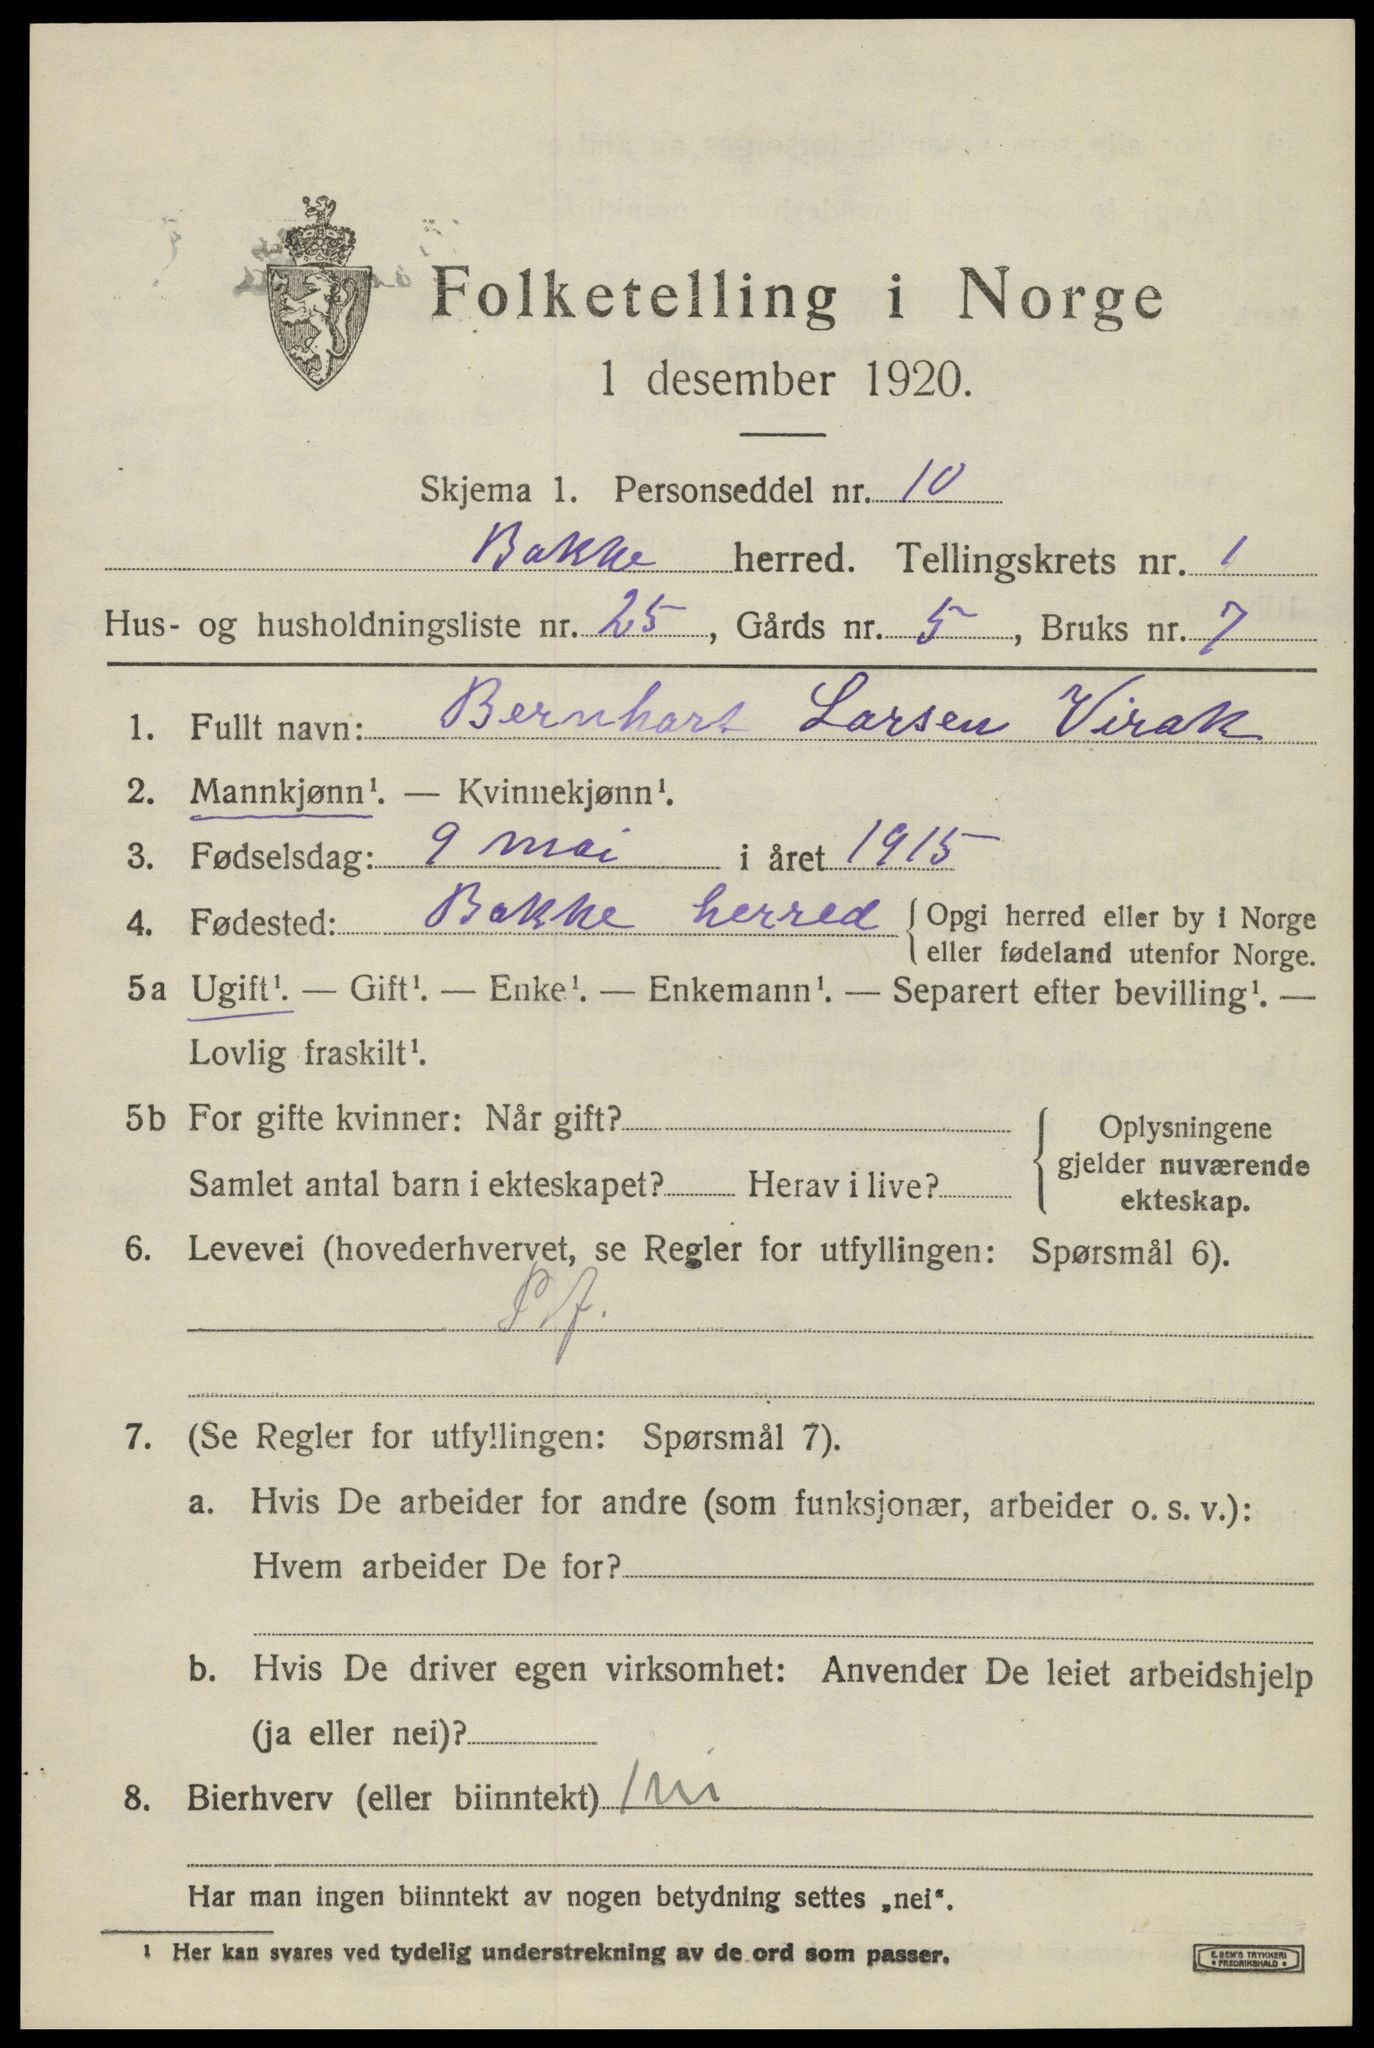 Folketelling i Norge
1 desember 1920.
Skjema 1. Personseddel nr. 10
Bakke herred. Tellingskrets nr. 1
Hus- og husholdningsliste nr. 25, Gårds nr. 5, Bruks nr. 7
1. Fullt navn: Bernhart Larsen Virak
2. Mannkjønn¹. — Kvinnekjønn¹.
3. Fødselsdag: 9 mai i året 1915
4. Fødested: Bakke herred { Opgi herred eller by i Norge
eller fødeland utenfor Norge.
5a Ugift¹. — Gift¹. — Enke¹. — Enkemann¹. — Separert efter bevilling¹. —
Lovlig fraskilt¹.
5b For gifte kvinner: Når gift?
Samlet antal barn i ekteskapet? Herav i live?
Oplysningene
gjelder nuværende
ekteskap.
6. Levevei (hovederhvervet, se Regler for utfyllingen: Spørsmål 6).
7. (Se Regler for utfyllingen: Spørsmål 7).
a. Hvis De arbeider for andre (som funksjonær, arbeider o. s. v.):
Hvem arbeider De for?
b. Hvis De driver egen virksomhet: Anvender De leiet arbeidshjelp
(ja eller nei)?
8. Bierhverv (eller biinntekt)
Har man ingen biinntekt av nogen betydning settes „nei“.
1 Her kan svares ved tydelig understrekning av de ord som passer.
E. SEM'S TRYKKERI
• FREDRIKSHALD •